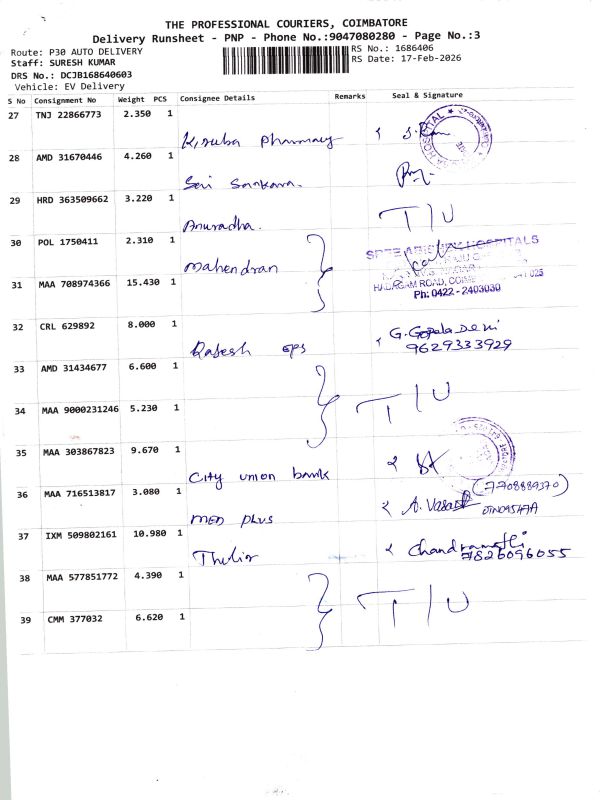 THE PROFESSIONAL COURIERS, COIMBATORE
Delivery Runsheet - PNP - Phone No.:9047080280 - Page No.:3
Route: P30 AUTO DELIVERY
RS No.: 1686406
Staff: SURESH KUMAR
RS Date: 17-Feb-2026
DRS No.: DCJB168640603
Vehicle: EV Delivery
S No Consignment No Weight PCS Consignee Details Remarks Seal & Signature
27 TNJ 22866773 2.350 1
Kiruba Pharmacy
HOSPITAL
28 AMD 31670446 4.260 1
Sri Sankara.
29 HRD 363509662 3.220 1
Anuradha. T/U
30 POL 1750411 2.310 1
Mahendran
HOSPITALS
31 MAA 708974366 15.430 1
ROAD,
Ph: 0422 - 2403030
32 CRL 629892 8.000 1
Rajesh GPS G. Gopala Devi
9629333929
33 AMD 31434677 6.600 1
T/U
34 MAA 9000231246 5.230 1
35 MAA 303867823 9.670 1
City union bank
36 MAA 716513817 3.080 1
(7708889370)
MED plus A.
37 IXM 509802161 10.980 1
Chandramathi
7826096055
38 MAA 577851772 4.390 1
T/U
39 CMM 377032 6.620 1